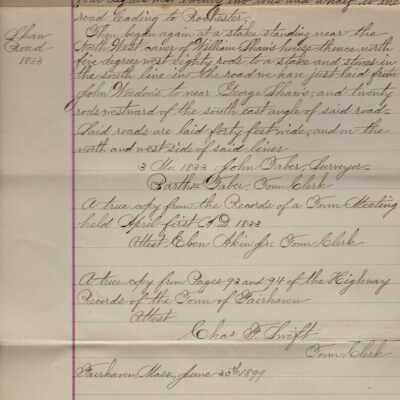 four degrees and twenty two rods and a half to the
road leading to Rochester.
Shaw
Road
1823
Then began again at a stake standing near the
North West corner of William Shaw's house thence north
five degrees west eighty rods to a stake and stones in
the south line in the road we have just laid from
John Wordon's to near George Shaw's, and twenty
rods westward of the south east angle of said road
Said roads are laid forty feet wide, and on the
north and west side of said lines
3 Mo. 1823 John Taber, Surveyor
Barthw Taber, Town Clerk
A true copy from the Records of a Town Meeting
held April first A.D. 1823
Attest Eben Akin Jr. Town Clerk
A true copy from Pages 93 and 94 of the Highway
Records of the Town of Fairhaven
Attest
Chas. F. Swift
Town Clerk
Fairhaven, Mass, June 20th 1899